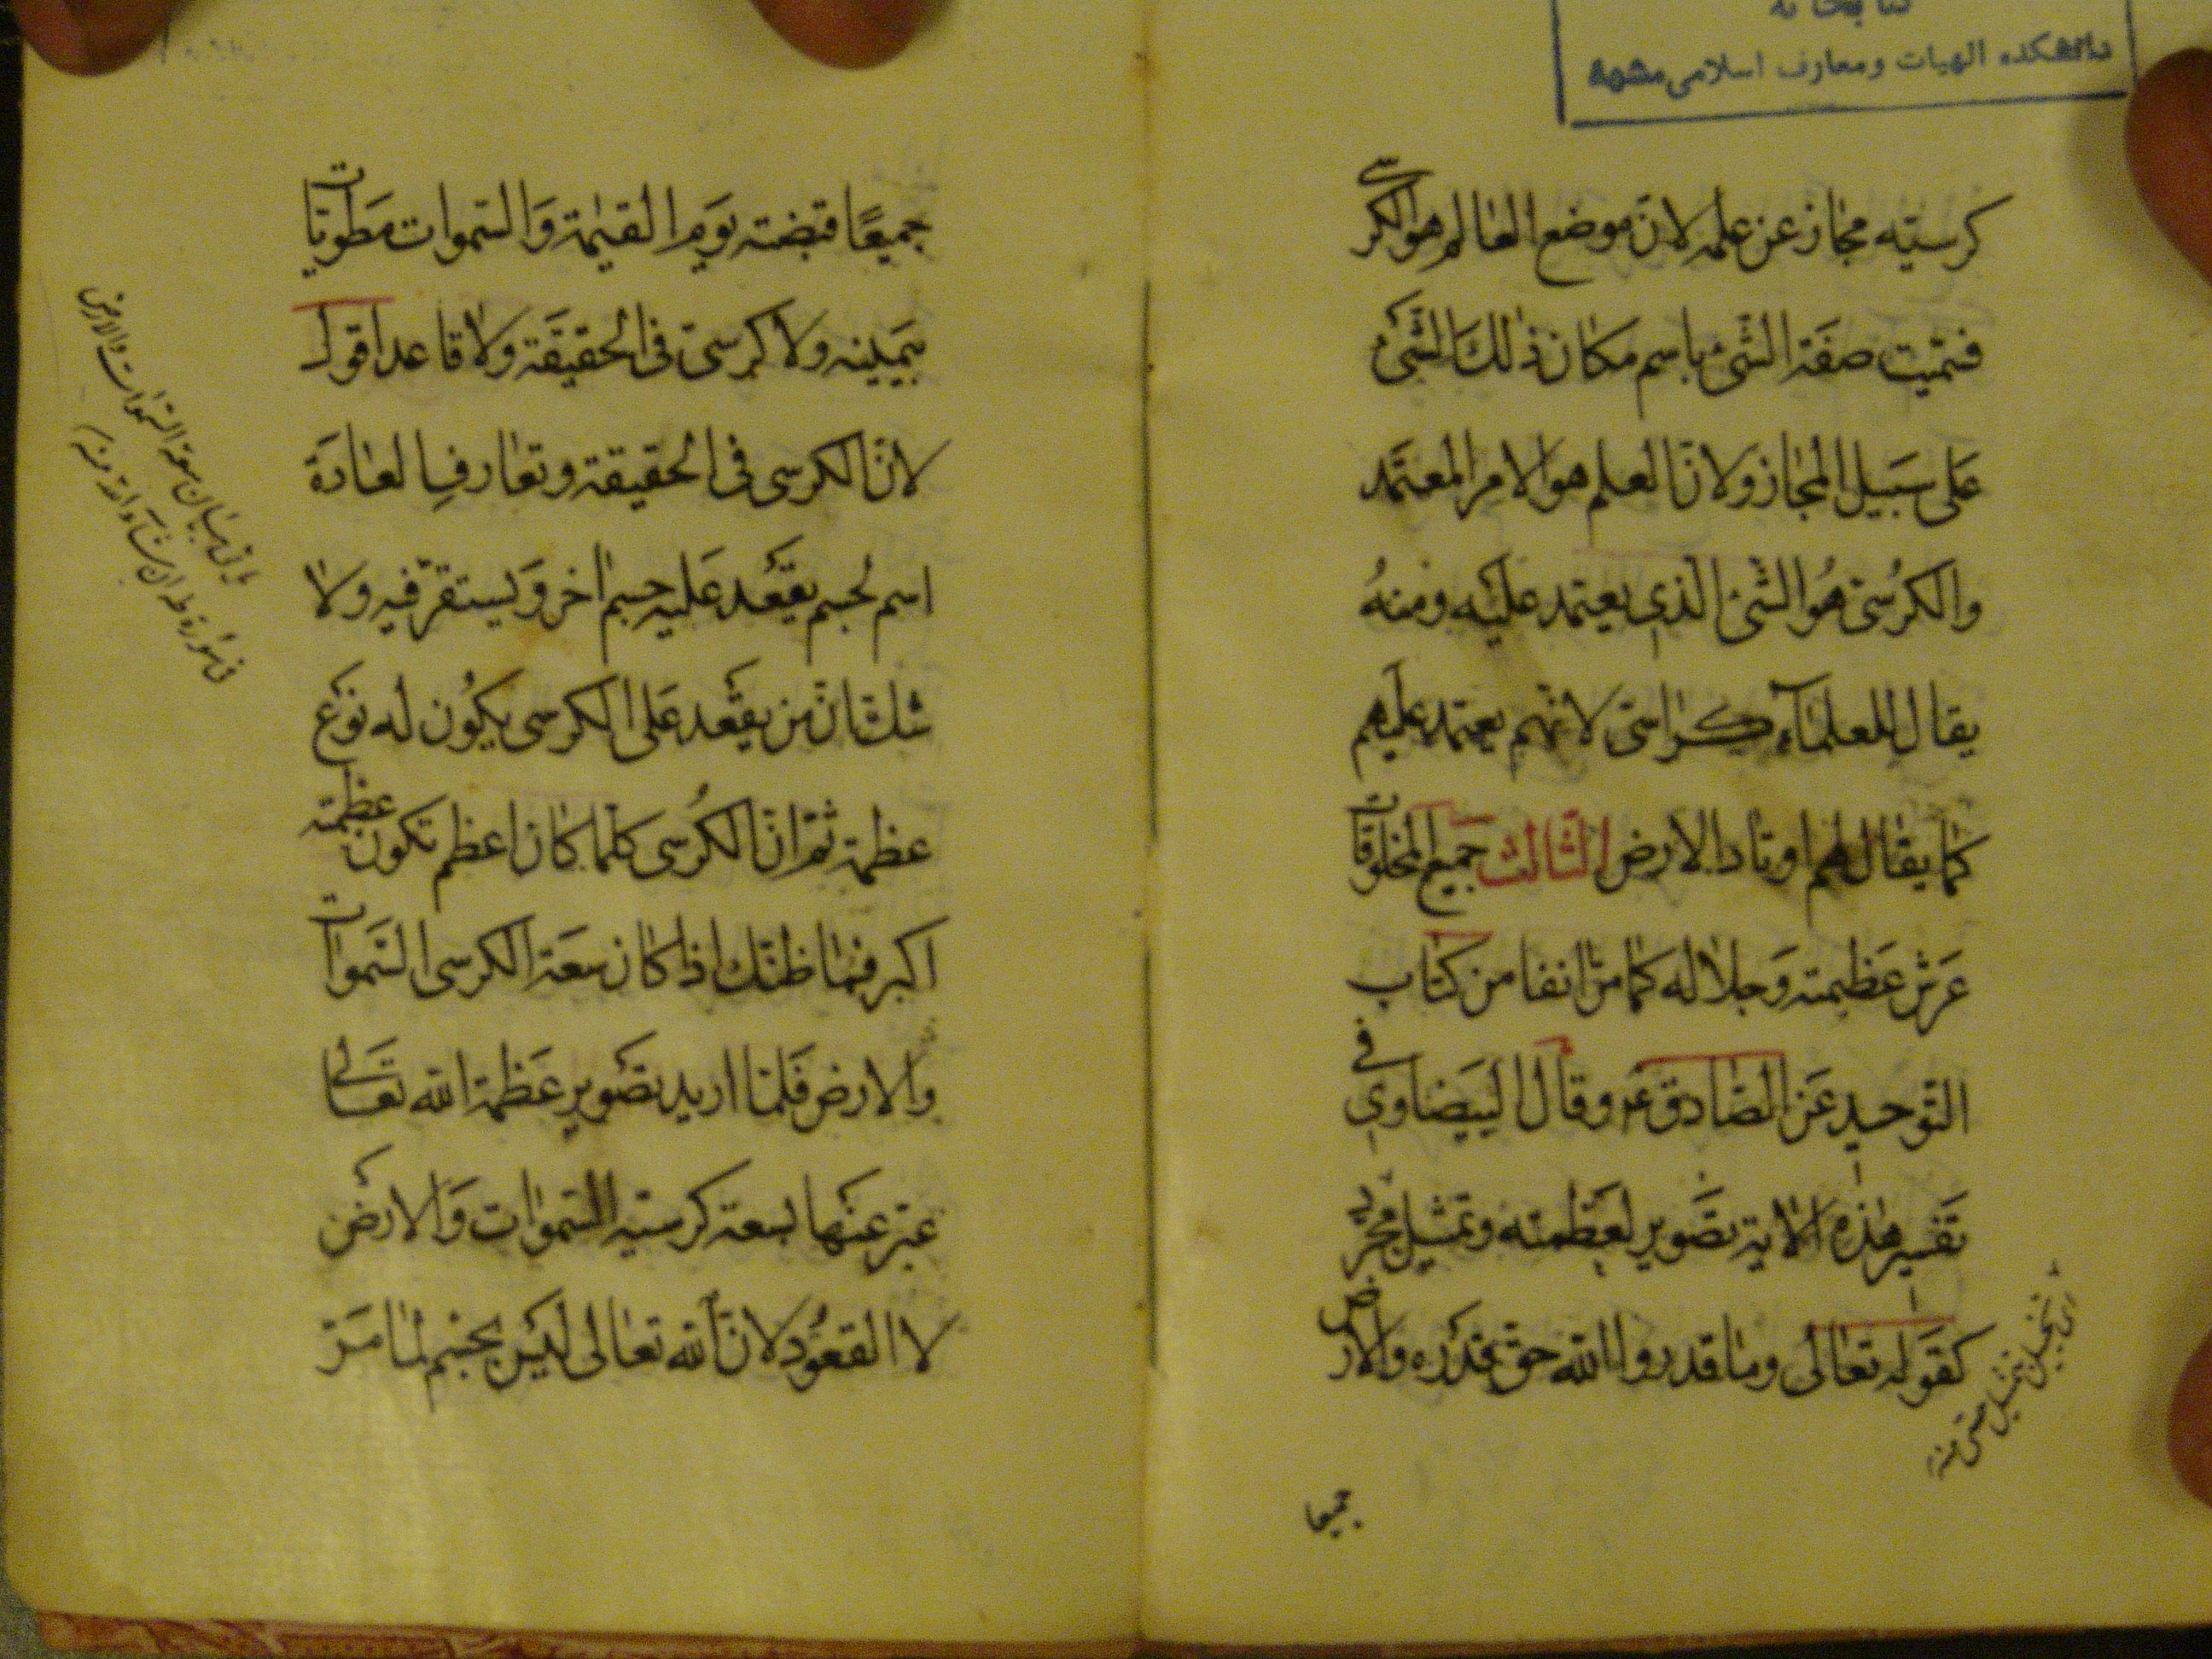 كتابخانه
دانشكده الهيات ومعارف اسلامى مشهد
كرسيّه مجاز عن علمه لانّ موضع العالم هو الكرسى
فسمّيت صفة الشّئ باسم مكان ذلك الشّئ
على سبيل المجاز ولانّ العلم هو الامر المعتمد
والكرسىّ هو الشّئ الذى يعتمد عليه ومنه
يقال للعلمآء كراسىّ لانّهم يعتمد عليهم
كما يقال لهم اوتاد الارض الثّالث جميع المخلوقات
عرش عظيمته وجلاله كما مرّ انفا من كتاب
التّوحيد عن الصّادق عم وقال البيضاوى فى
تفسير هذه الاية تصوير لعظمته وتمثيل مجرّد
كقوله تعالى وما قدروا الله حقّ قدره والارض
جميعا
جميعًا قبضته يوم القيٰمة والسّموات مطويّات
بيمينه ولا كرسىّ فى الحقيقة ولا قاعد اقول
لانّ الكرسى فى الحقيقة وتعارف العادة
اسم لجسم يقعد عليه جسم اخر ويستقرّ فيه ولا
شك انّ من يقعد على الكرسى يكون له نوع
عظمة ثمّ انّ الكرسى كلّما كان اعظم تكون عظمته
اكبر فما ظنّك اذا كان سعة الكرسى السّموات
والارض فلمّا اريد تصوير عظمة الله تعالى
عبّر عنها بسعة كرسيّه السّموات والارض
لا القعود لانّ الله تعالى ليس بجسم لما مرّ
بيان سعة السّموات والارض
فى سورة طه ان شآء الله منه